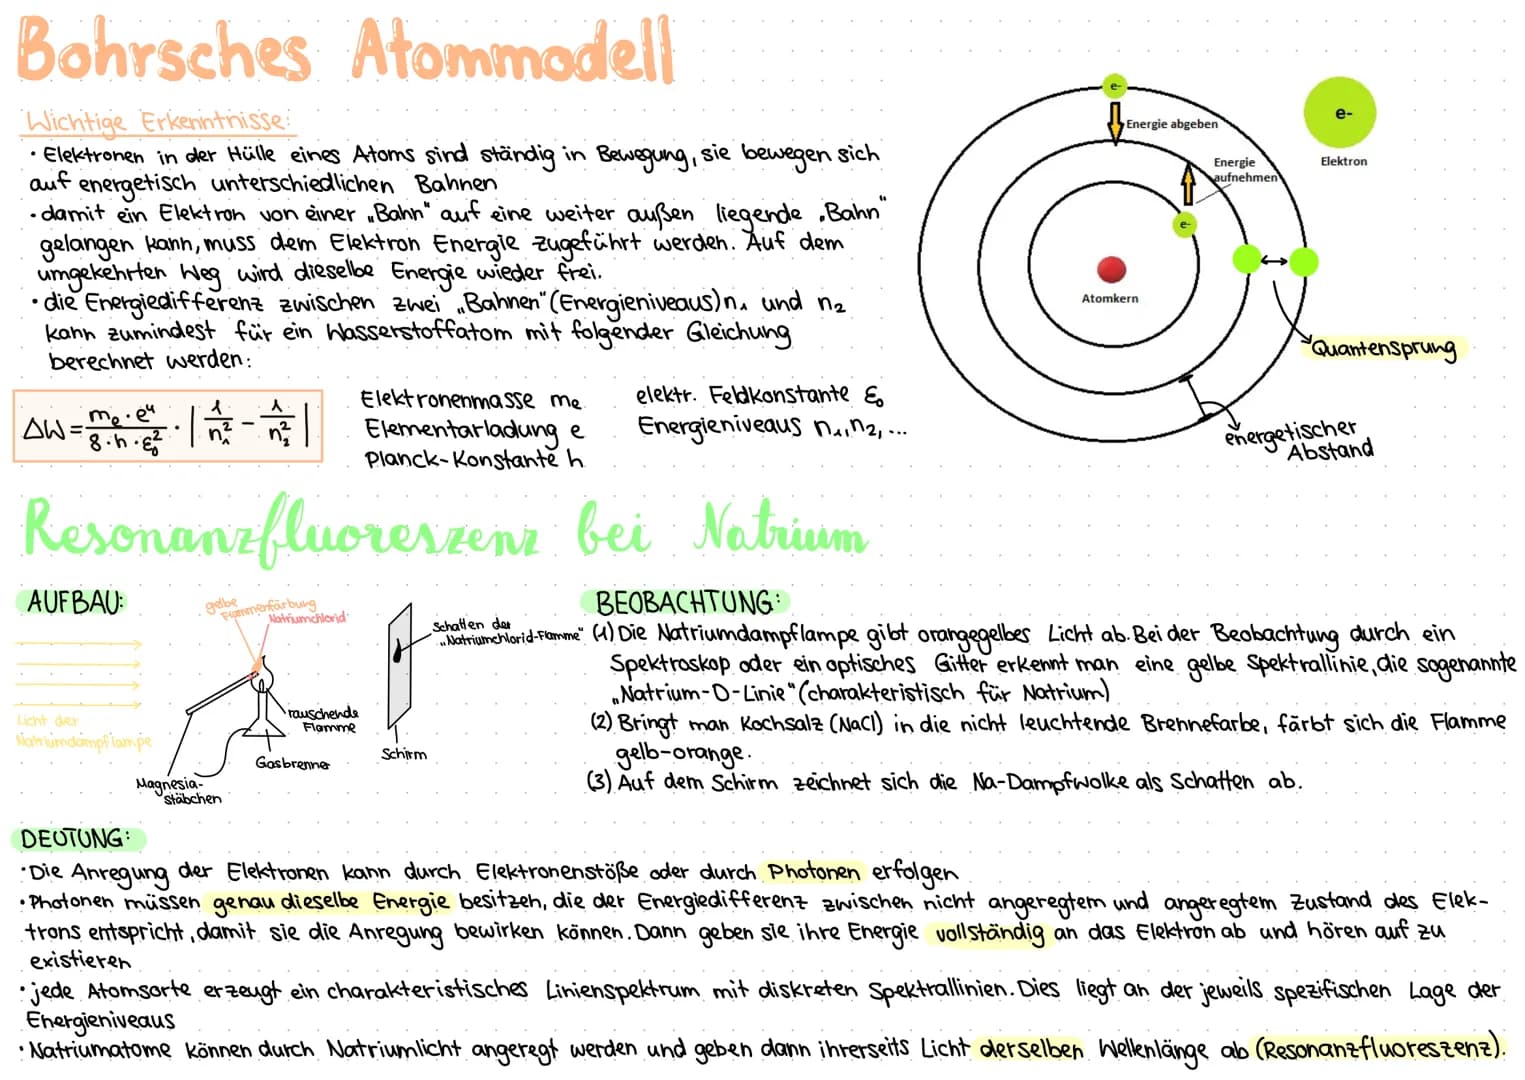 Bohrsches Atommodell
Wichtige Erkenntnisse:
• Elektronen in der Hülle eines Atoms sind ständig in Bewegung, sie bewegen sich
auf energetisch unterschiedlichen Bahnen
• damit ein Elektron von einer „Bahn" auf eine weiter außen liegende „Bahn"
gelangen kann, muss dem Elektron Energie zugeführt werden. Auf dem
umgekehrten Weg wird dieselbe Energie wieder frei.
• die Energiedifferenz zwischen zwei „Bahnen" (Energieniveaus) n₁ und n₂
kann zumindest für ein Wasserstoffatom mit folgender Gleichung
berechnet werden:
ΔW = mₑ · e⁴ / 8 · h · ε₀² · | 1/n₁² - 1/n₂² |
Elektronenmasse me
Elementarladung e
Planck-Konstante h
elektr. Feldkonstante ε₀
Energieniveaus n₁, n₂, ...
e-
Energie abgeben
Energie
aufnehmen
e-
Atomkern
e-
Elektron
Quantensprung
energetischer
Abstand
Resonanzfluoreszenz bei Natrium
AUFBAU:
Licht der
Natriumdampflampe
gelbe
Flammenfärbung
Natriumchlorid
rauschende
Flamme
Gasbrenner
Magnesia-
stäbchen
Schirm
Schatten der
„Natriumchlorid-Flamme"
BEOBACHTUNG:
(1) Die Natriumdampflampe gibt orangegelbes Licht ab. Bei der Beobachtung durch ein
Spektroskop oder ein optisches Gitter erkennt man eine gelbe Spektrallinie, die sogenannte
„Natrium-D-Linie" (charakteristisch für Natrium)
(2) Bringt man Kochsalz (NaCl) in die nicht leuchtende Brennefarbe, färbt sich die Flamme
gelb-orange.
(3) Auf dem Schirm zeichnet sich die Na-Dampfwolke als Schatten ab.
DEUTUNG:
• Die Anregung der Elektronen kann durch Elektronenstöße oder durch Photonen erfolgen
• Photonen müssen genau dieselbe Energie besitzen, die der Energiedifferenz zwischen nicht angeregtem und angeregtem Zustand des Elek-
trons entspricht, damit sie die Anregung bewirken können. Dann geben sie ihre Energie vollständig an das Elektron ab und hören auf zu
existieren
• jede Atomsorte erzeugt ein charakteristisches Linienspektrum mit diskreten Spektrallinien. Dies liegt an der jeweils spezifischen Lage der
Energieniveaus
• Natriumatome können durch Natriumlicht angeregt werden und geben dann ihrerseits Licht derselben Wellenlänge ab (Resonanzfluoreszenz).